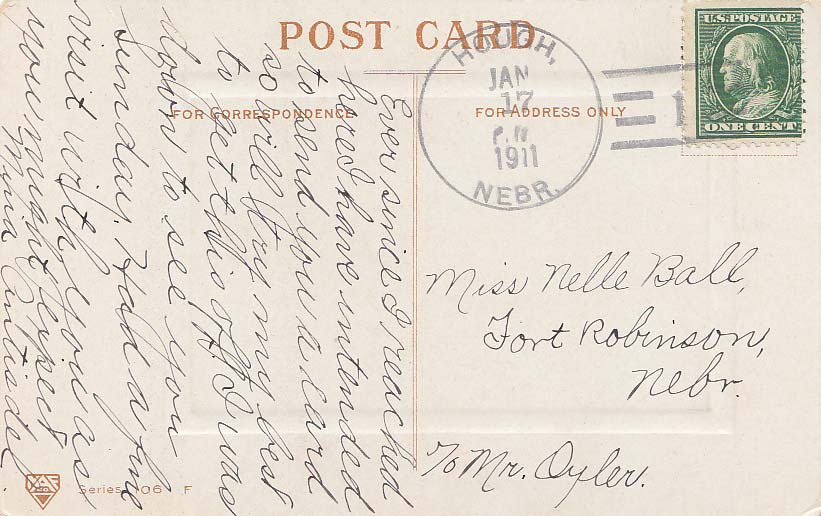 POST CARD
FOR CORRESPONDENCE
FOR ADDRESS ONLY
HOUGH,
JAN
17
P.M
1911
NEBR.
1
U.S. POSTAGE
ONE CENT
Ever since I reached
here I have intended
to send you a card
so will try my best
to get this off. I was
down to see you
Sunday. Had a fine
visit with you as
you might expect
Miss Nelle Ball,
Fort Robinson,
Nebr.
℅ Mr. Oyler.
Series 106 F